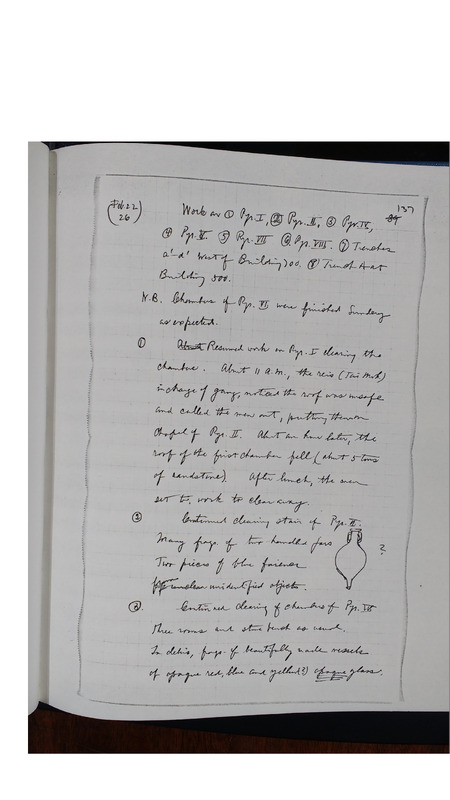 137
Feb. 22
26
Work on ① Pyr. I, ② Pyr. II, ③ Pyr. IV,
④ Pyr. V. ⑤ Pyr. VII ⑥ Pyr. VIII. ⑦ Trenches
a'-d' West of Building 700. ⑧ Trench A at
Building 500.
N.B. Chambers of Pyr. VI were finished Sunday
as expected.
① About Resumed work on Pyr. I clearing the
chamber. About 11 A.M., the reis
in charge of gang, noticed the roof was unsafe
and called the men out, putting them on
chapel of Pyr. II. About an hour later, the
roof of the first chamber fell (about 5 tons
of sandstone). After lunch, the men
set to work to clear away.
Continued clearing stair of Pyr. II.
Many frags. of two handled jars
?
Two pieces of blue faience
unidentified objects.
Continued clearing of chambers of Pyr.
Three rooms and stone bench as usual.
In debris, frags. of beautifully made vessels
of opaque red, blue and yellow(?) opaque glass.